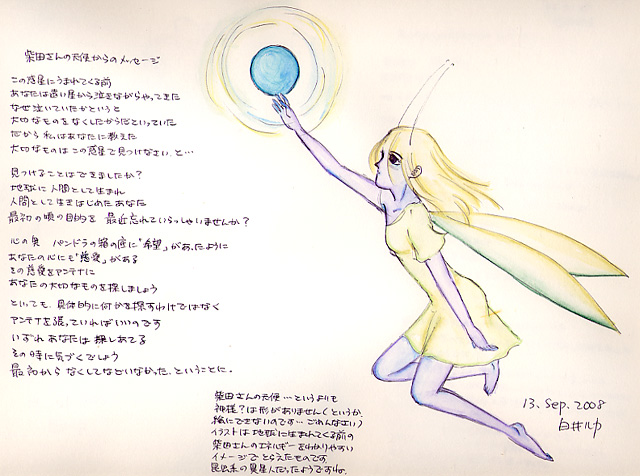 柴田さんの天使からのメッセージ
この惑星にうまれてくる前
あなたは遠い星から泣きながらやってきた
なぜ泣いていたかというと
大切なものをなくしたからだといっていた
だから私はあなたに教えた
大切なものはこの惑星で見つけなさい、と…
見つけることはできましたか?
地球に人間として生まれ
人間として生きはじめたあなた
最初の頃の目的を 最近忘れていらっしゃいませんか?
心の奥 パンドラの箱の底に“希望”があったように
あなたの心にも“慈愛”がある
その慈愛をアンテナに
あなたの大切なものを探しましょう
といっても、具体的に何かを探すわけではなく
アンテナを張っていればいいのです
いずれあなたは探しあてる
その時に気づくでしょう
最初から なくしてなどいなかった、ということに。
柴田さんの天使…というよりも
神様?は形がありません(というか、
絵にできないのです…ごめんなさい)
イラストは地球に生まれてくる前の
柴田さんのエネルギーをわかりやすい
イメージでとらえたものです
昆虫系の異星人だったようですね。
13. Sep. 2008
白井ルウ